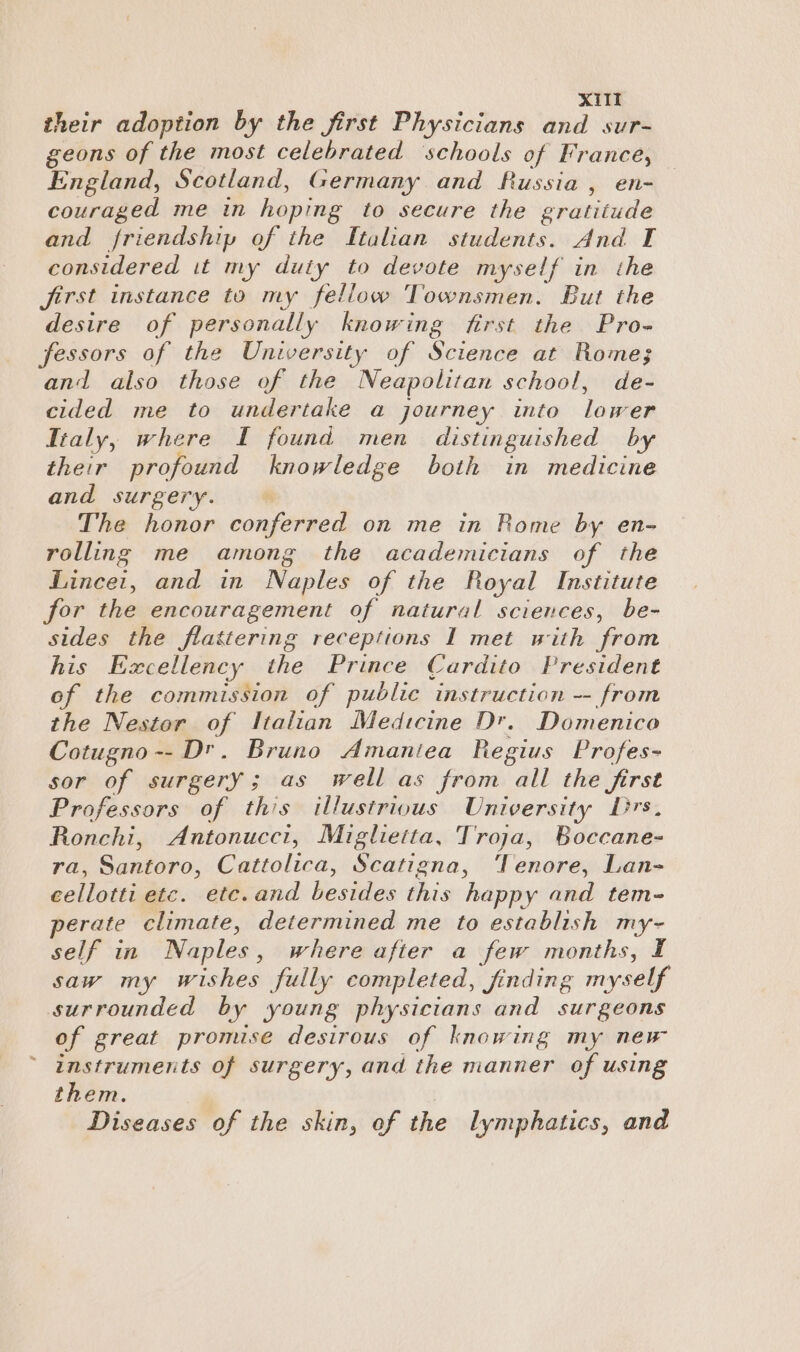 XIII
their adoption by the first Physicians and sur-
geons of the most celebrated schools of France,
England, Scotland, Germany and Russia, en-
couraged me in hoping to secure the gratitude
and friendship of the Italian students. And I
considered it my duty to devote myself in the
first instance to my fellow Townsmen. But the
desire of personally knowing first the Pro-
fessors of the University of Science at Rome;
and also those of the Neapolitan school, de-
cided me to undertake a journey into lower
Italy, where I found men distinguished by
their profound knowledge both in medicine
and surgery.
The honor conferred on me in Rome by en-
rolling me among the academicians of the
Lincei, and in Naples of the Royal Institute
for the encouragement of natural sciences, be-
sides the flattering receptions I met with from
his Excellency the Prince Cardito President
of the commission of public instruction -- from
the Nestor of Italian Medicine Dr. Domenico
Cotugno -- Dr. Bruno Amantea Regius Profes-
sor of surgery; as well as from all the first
Professors of this illustrious University Drs.
Ronchi, Antonucci, Miglietta, Troja, Boccane-
ra, Santoro, Cattolica, Scatigna, Tenore, Lan-
cellotti etc. etc. and besides this happy and tem-
perate climate, determined me to establish my-
self in Naples, where after a few months, I
saw my wishes fully completed, finding myself
surrounded by young physicians and surgeons
of great promise desirous of knowing my new
instruments of surgery, and the manner of using
them.
Diseases of the skin, of the lymphatics, and